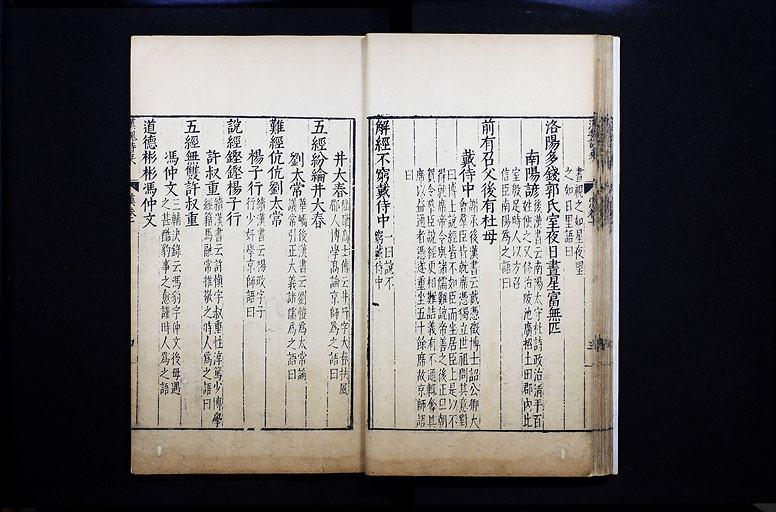 晝視之如星夜望
之如日里語曰
洛陽多錢郭氏室夜日晝星富無匹
南陽諺
後漢書云南陽太守杜詩政治清平百
姓便之又修治陂池廣拓土田郡內比
室殷足時人以方召
信臣南陽為之語曰
前有召父後有杜母
戴侍中
謝承後漢書云戴憑徵博士詔公卿大
會羣臣皆就席憑獨立世祖問其意對
曰博士說經皆不如臣而坐居臣上是以不
得就席帝令與諸儒難說帝善之後正旦朝
賀令羣臣說經更相難詰義有不通輒奪其
席以益通者憑遂重坐五十餘席故京師語
曰
解經不窮戴侍中
一曰說不
窮戴侍中
井大春
字大春扶風
郿人博學高論京師為之語曰
五經紛綸井大春
劉太常
華嶠後漢書云劉愷為太常論
議常引正大義諸儒為之語曰
難經伉伉劉太常
楊子行
續漢書云楊政字子
行少好學京師語曰
說經鏗鏗楊子行
許叔重
續漢書云許慎字叔重性淳篤少博學
經籍馬融常推敬之時人為之語曰
五經無雙許叔重
馮仲文
三輔決錄云馮豹字仲文後母遇
之甚酷豹事之愈謹時人為之語
道德彬彬馮仲文